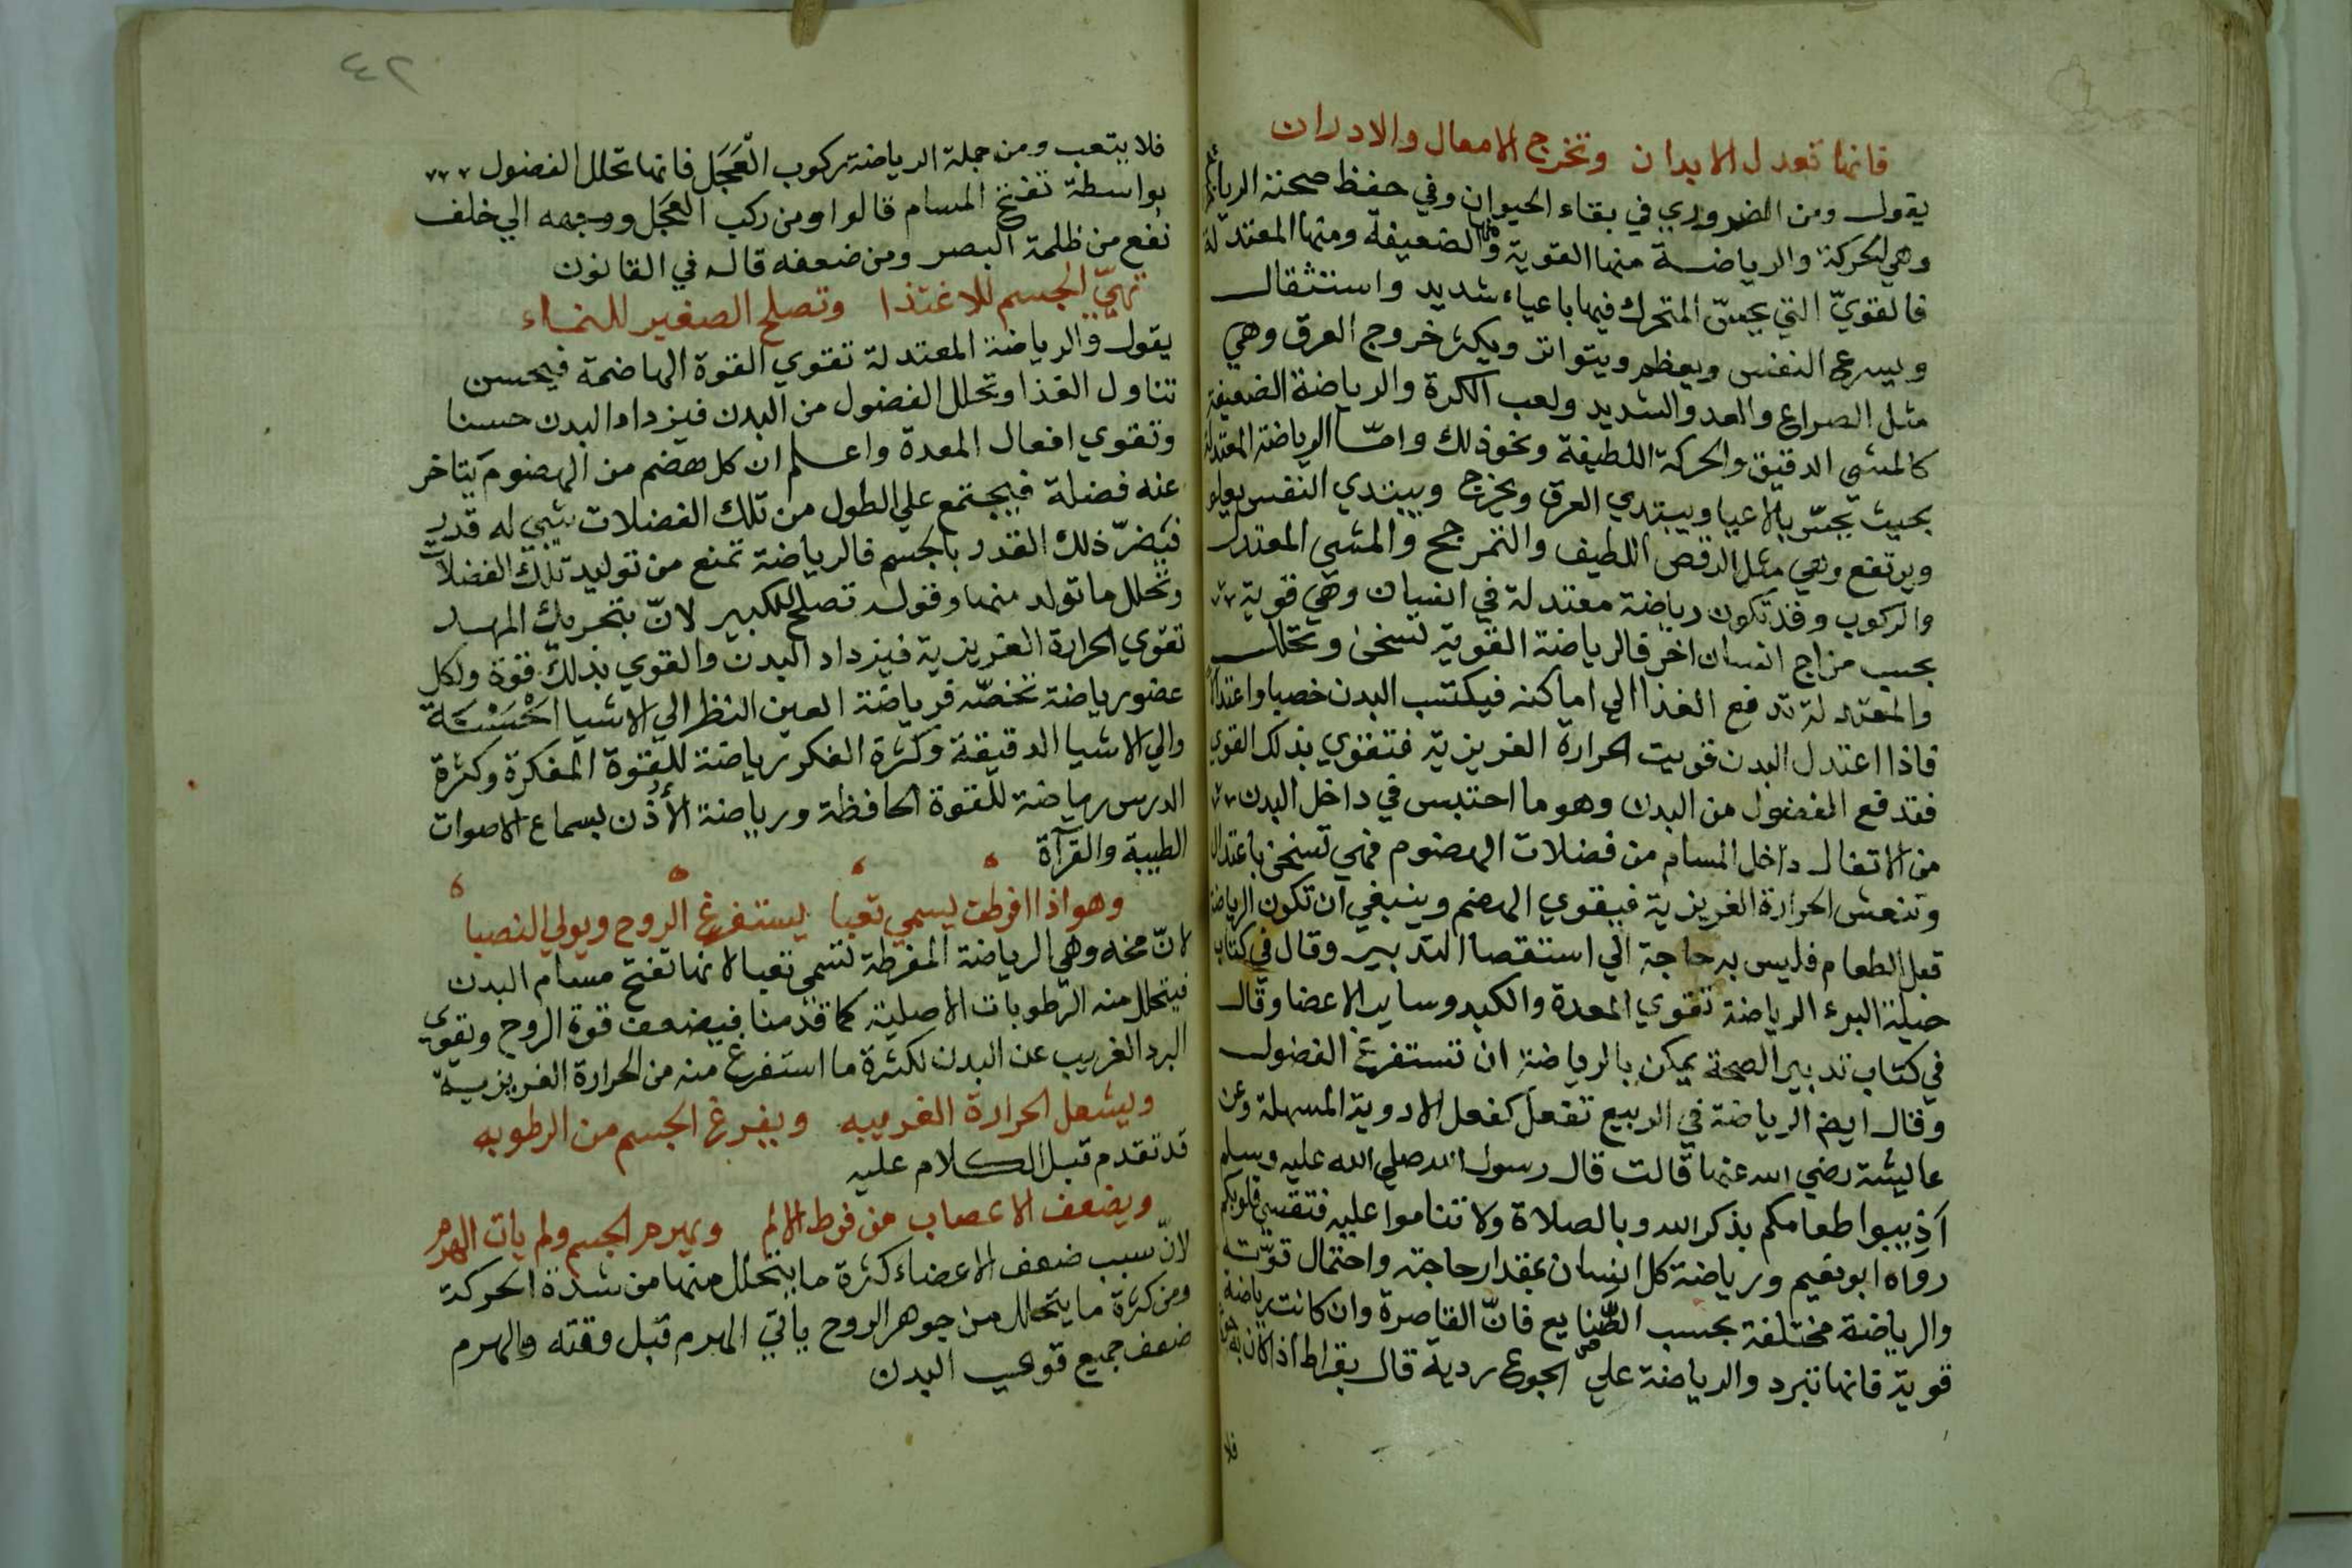 فانها تعدل الابدان وتخرج الامعال والادران
يقول ومن الضروري في بقاء الحيوان وفي حفظ صحته الرياضة
وهي لحركة والرياضة منها القوية ومنها الضعيفة ومنها المعتدلة
فالقويّ التي يحسّ المتحرك فيها باعياء شديد واستثقال
ويسرع النفس ويعظم ويتواتر ويكثر خروج العرق وهي
مثل الصراع والعدو الشديد ولعب الكرة والرياضة الضعيفة
كالمشي الدقيق والحركة اللطيفة ونحو ذلك وامّا الرياضة المعتدلة
بحيث يحسّ بالاعيا ويبتدي العرق ويخرج ويبتدي النفس يعلو
ويرتفع وهي مثل الرقص اللطيف والتمرجح والمشي المعتدل
والركوب وقد تكون رياضة معتدلة في انسان وهي قوية
بحسب مزاج انسان اخر فالرياضة القوية تسخن وتحلل
والمعتدلة تدفع الغذا الي اماكنه فيكتسب البدن خصبا واعتدالا
فاذا اعتدل البدن قويت الحرارة الغريزية فتقوي بذلك القوي
فتدفع الفضول من البدن وهو ما احتبس في داخل البدن
من الاتفال داخل المسام من فضلات الهضوم فهي تسخن باعتدال
وتنعش الحرارة الغريزية فيقوي الهضم وينبغي ان تكون الرياضة
قبل الطعام فليس به حاجة الي استقصا التدبير وقال في كتاب
حيلة البرء الرياضة تقوي المعدة والكبد وساير الاعضا وقال
في كتاب تدبير الصحة يمكن بالرياضة ان تستفرغ الفضول
وقال ايض الرياضة في الربيع تفعل كفعل الادوية المسهلة وعن
عايشة رضي الله عنها قالت قال رسول الله صلي الله عليه وسلم
اَذيبوا طعامكم بذكر الله وبالصلاة ولا تناموا عليه فتقسي قلوبكم
رواه ابو نعيم ورياضة كل انسان بمقدار حاجته واحتمال قوّته
والرياضة مختلفة بحسب الصّنايع فانّ القاصرة وان كانت رياضة
قوية فانها تبرد والرياضة علي الجوع ردية قال بقراط اذا كان به جوع
فلا
٤٢
فلا يتعب ومن جملة الرياضة ركوب العَجَل فانها تحلل الفضول
بواسطة تفتح المسام قالوا ومن ركب العجَل ووجهه الي خلف
نفع من ظلمة البصر ومن ضعفه قاله في القانون
تهيّي الجسم للاغتذا وتصلح الصغير للنماء
يقول والرياضة المعتدلة تقوي القوة الهاضمة فيحسن
تناول الغذا وتحلل الفضول من البدن فيزداد البدن حسنا
وتقوي افعال المعدة واعلم ان كل هضم من الهضوم يتاخر
عنه فضلة فيجتمع علي الطول من تلك الفضلات شي له قدر
فيضرّ ذلك القدر بالجسم فالرياضة تمنع من توليد تلك الفضلات
وتحلل ما تولد منها وقوله تصلح للكبير لانّ بتحريك المهد
تقوي الحرارة الغريزية فيزداد البدن والقوي بذلك قوة ولكل
عضو رياضة تخصّه فرياضة العين النظر الي الاشيا الحَسَنَة
والي الاشيا الدقيقة وكثرة الفكر رياضة للقوة المفكرة وكثرة
الدرس رياضة للقوة الحافظة ورياضة الأذُن بسماع الاصوات
الطيبة والقرآة
وهو اذا افرطت يسمي تعبا يستفرغ الروح ويولي النصبا
لانّ مخه وهي الرياضة المفرطة تسمى تعبا لانها تفتح مسام البدن
فيتحلل منه الرطوبات الاصلية كما قدّمنا فيضعف قوة الروح وتقوى
البرد الغريب عن البدن لكثرة ما استفرغ منه من الحرارة الغريزية
ويشعل الحرارة الغريبه ويفرغ الجسم من الرطوبه
قد تقدم قبل الكلام عليه
ويضعف الاعصاب من فرط الالم ويهرم الجسم ولم يات الهرم
لانّ سبب ضعف الاعضاء كثرة ما يتحلل منها من شدة الحركة
ومن كثرة ما يتحلل من جوهر الروح يأتي الهرم قبل وقته والهرم
ضعف جميع قوى البدن